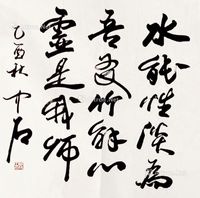 水能性淡為
吾友竹解心
虛是我師
乙酉秋 中石